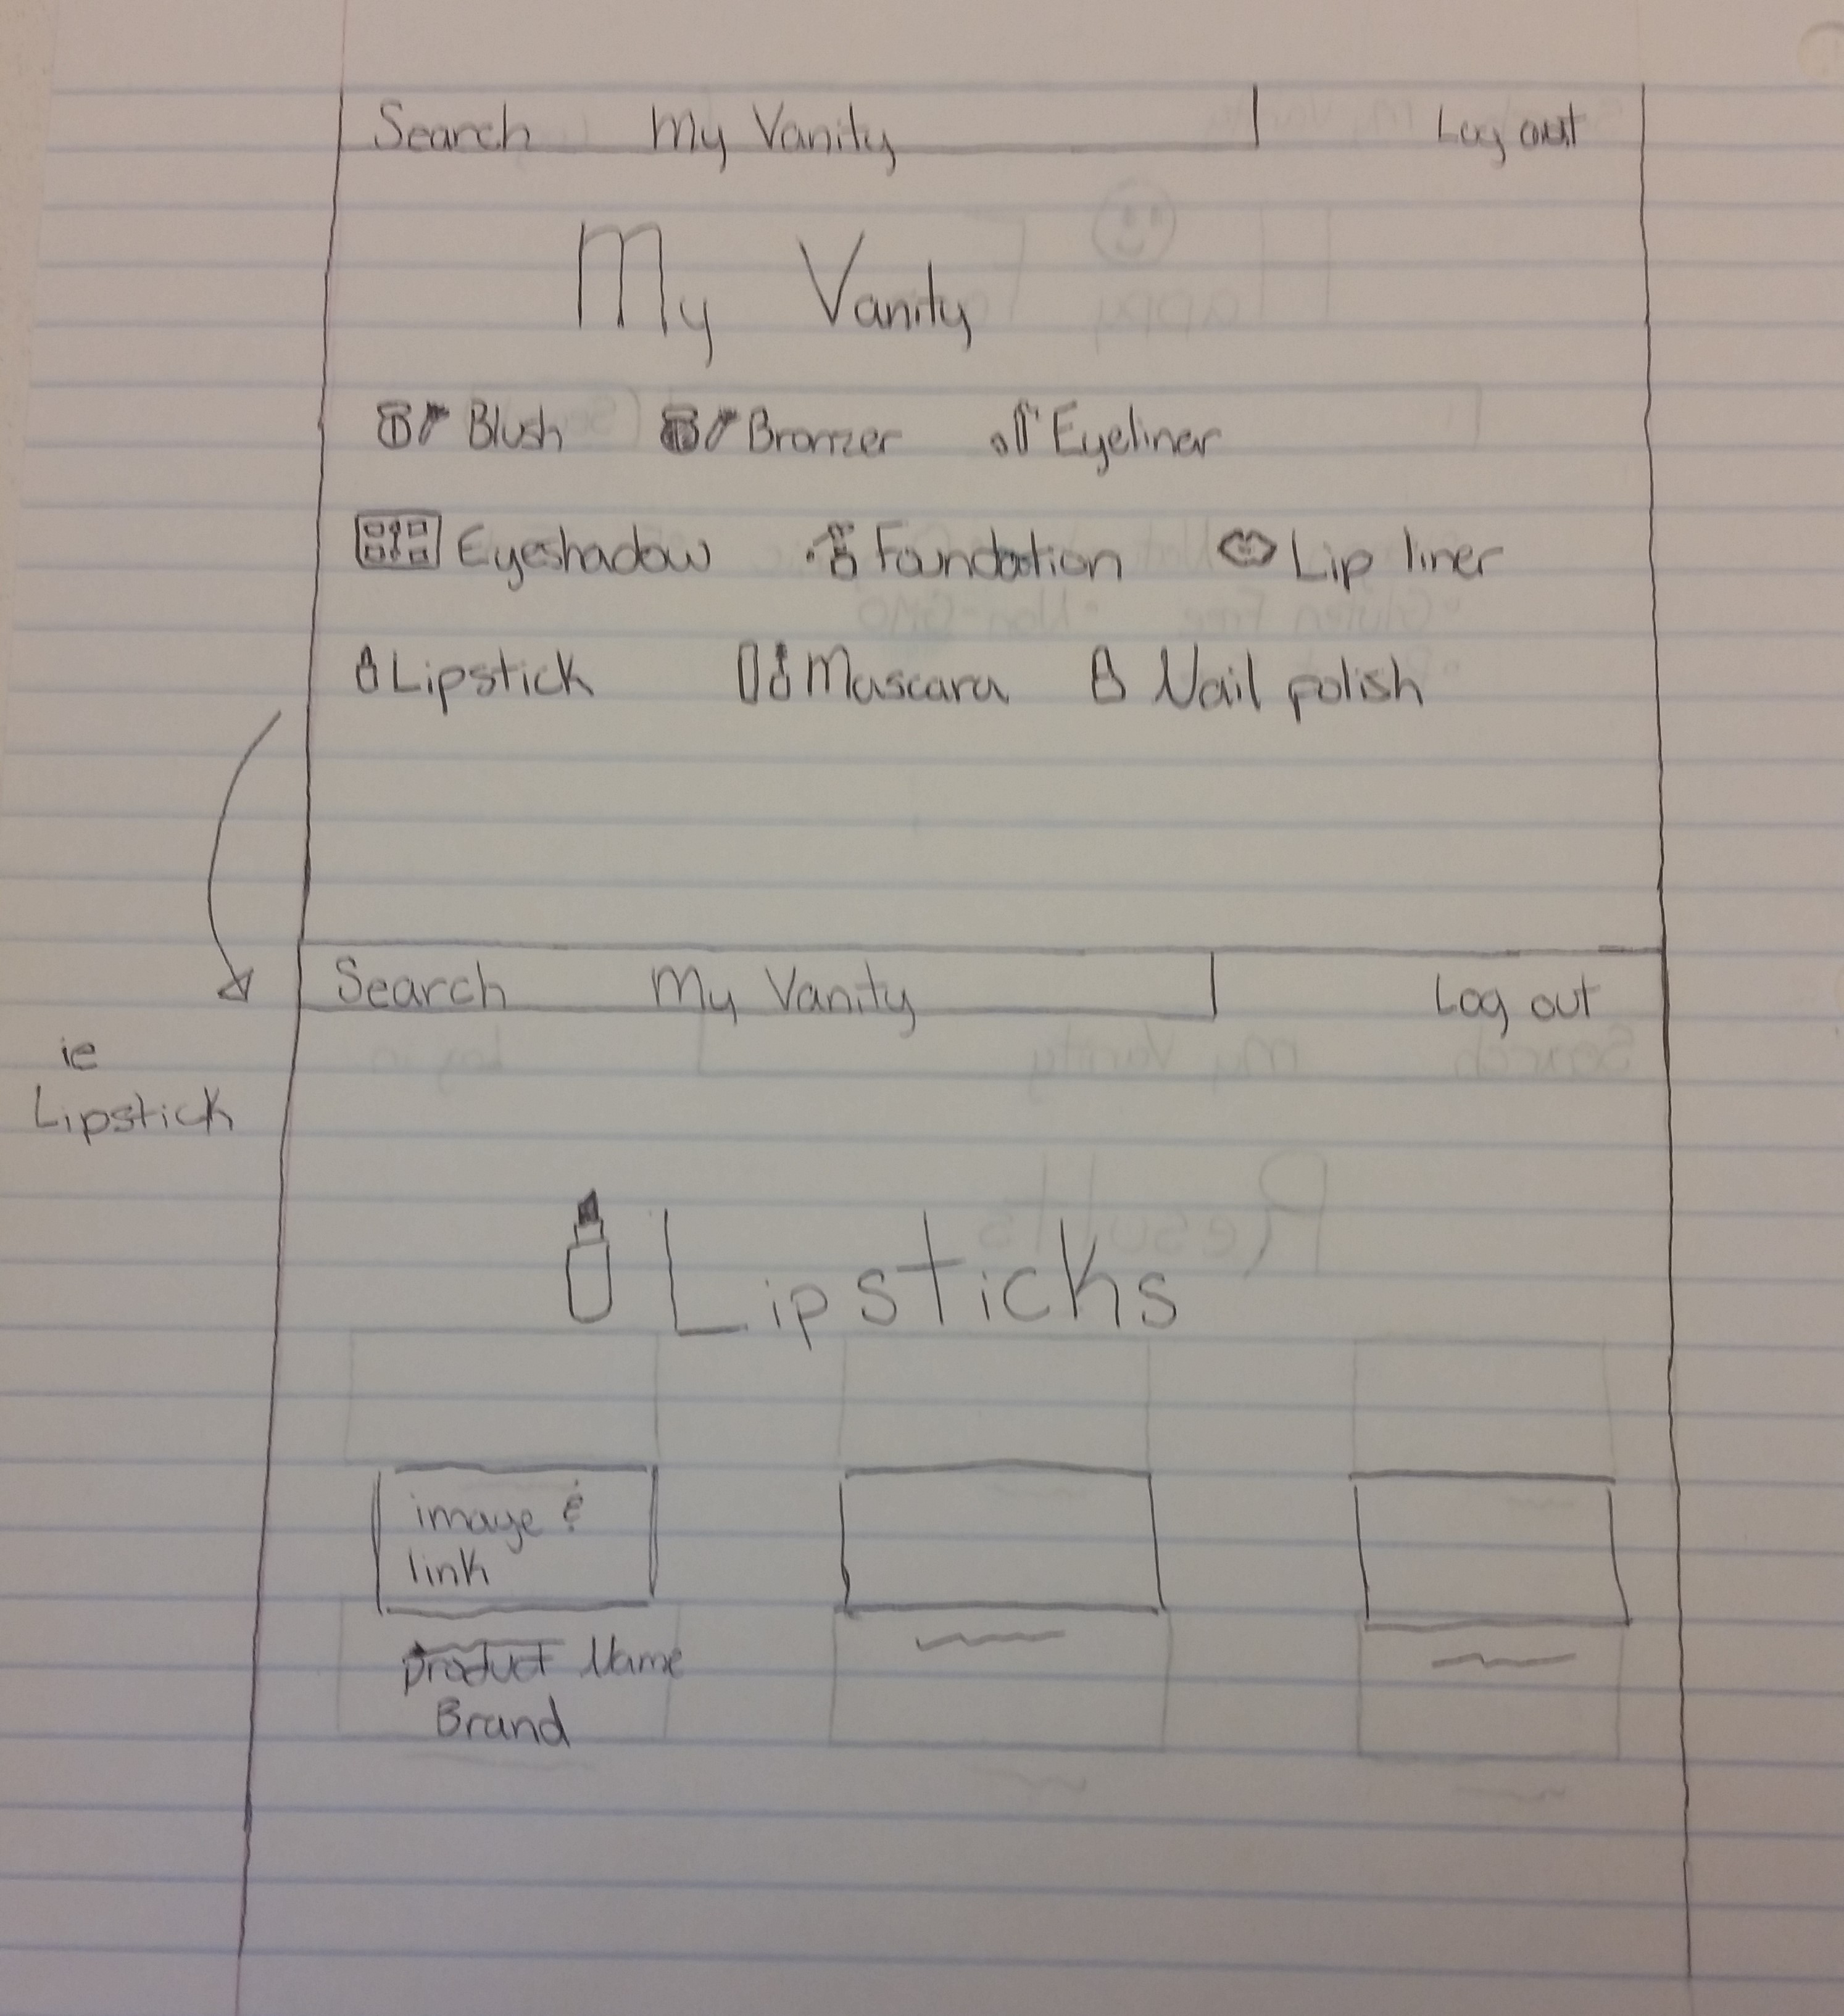 Search My Vanity Log out
My Vanity
Blush Bronzer Eyeliner
Eyeshadow Foundation Lip liner
Lipstick Mascara Nail polish
Search My Vanity Log out
ie
Lipstick
Lipsticks
image &
link
product Name
Brand